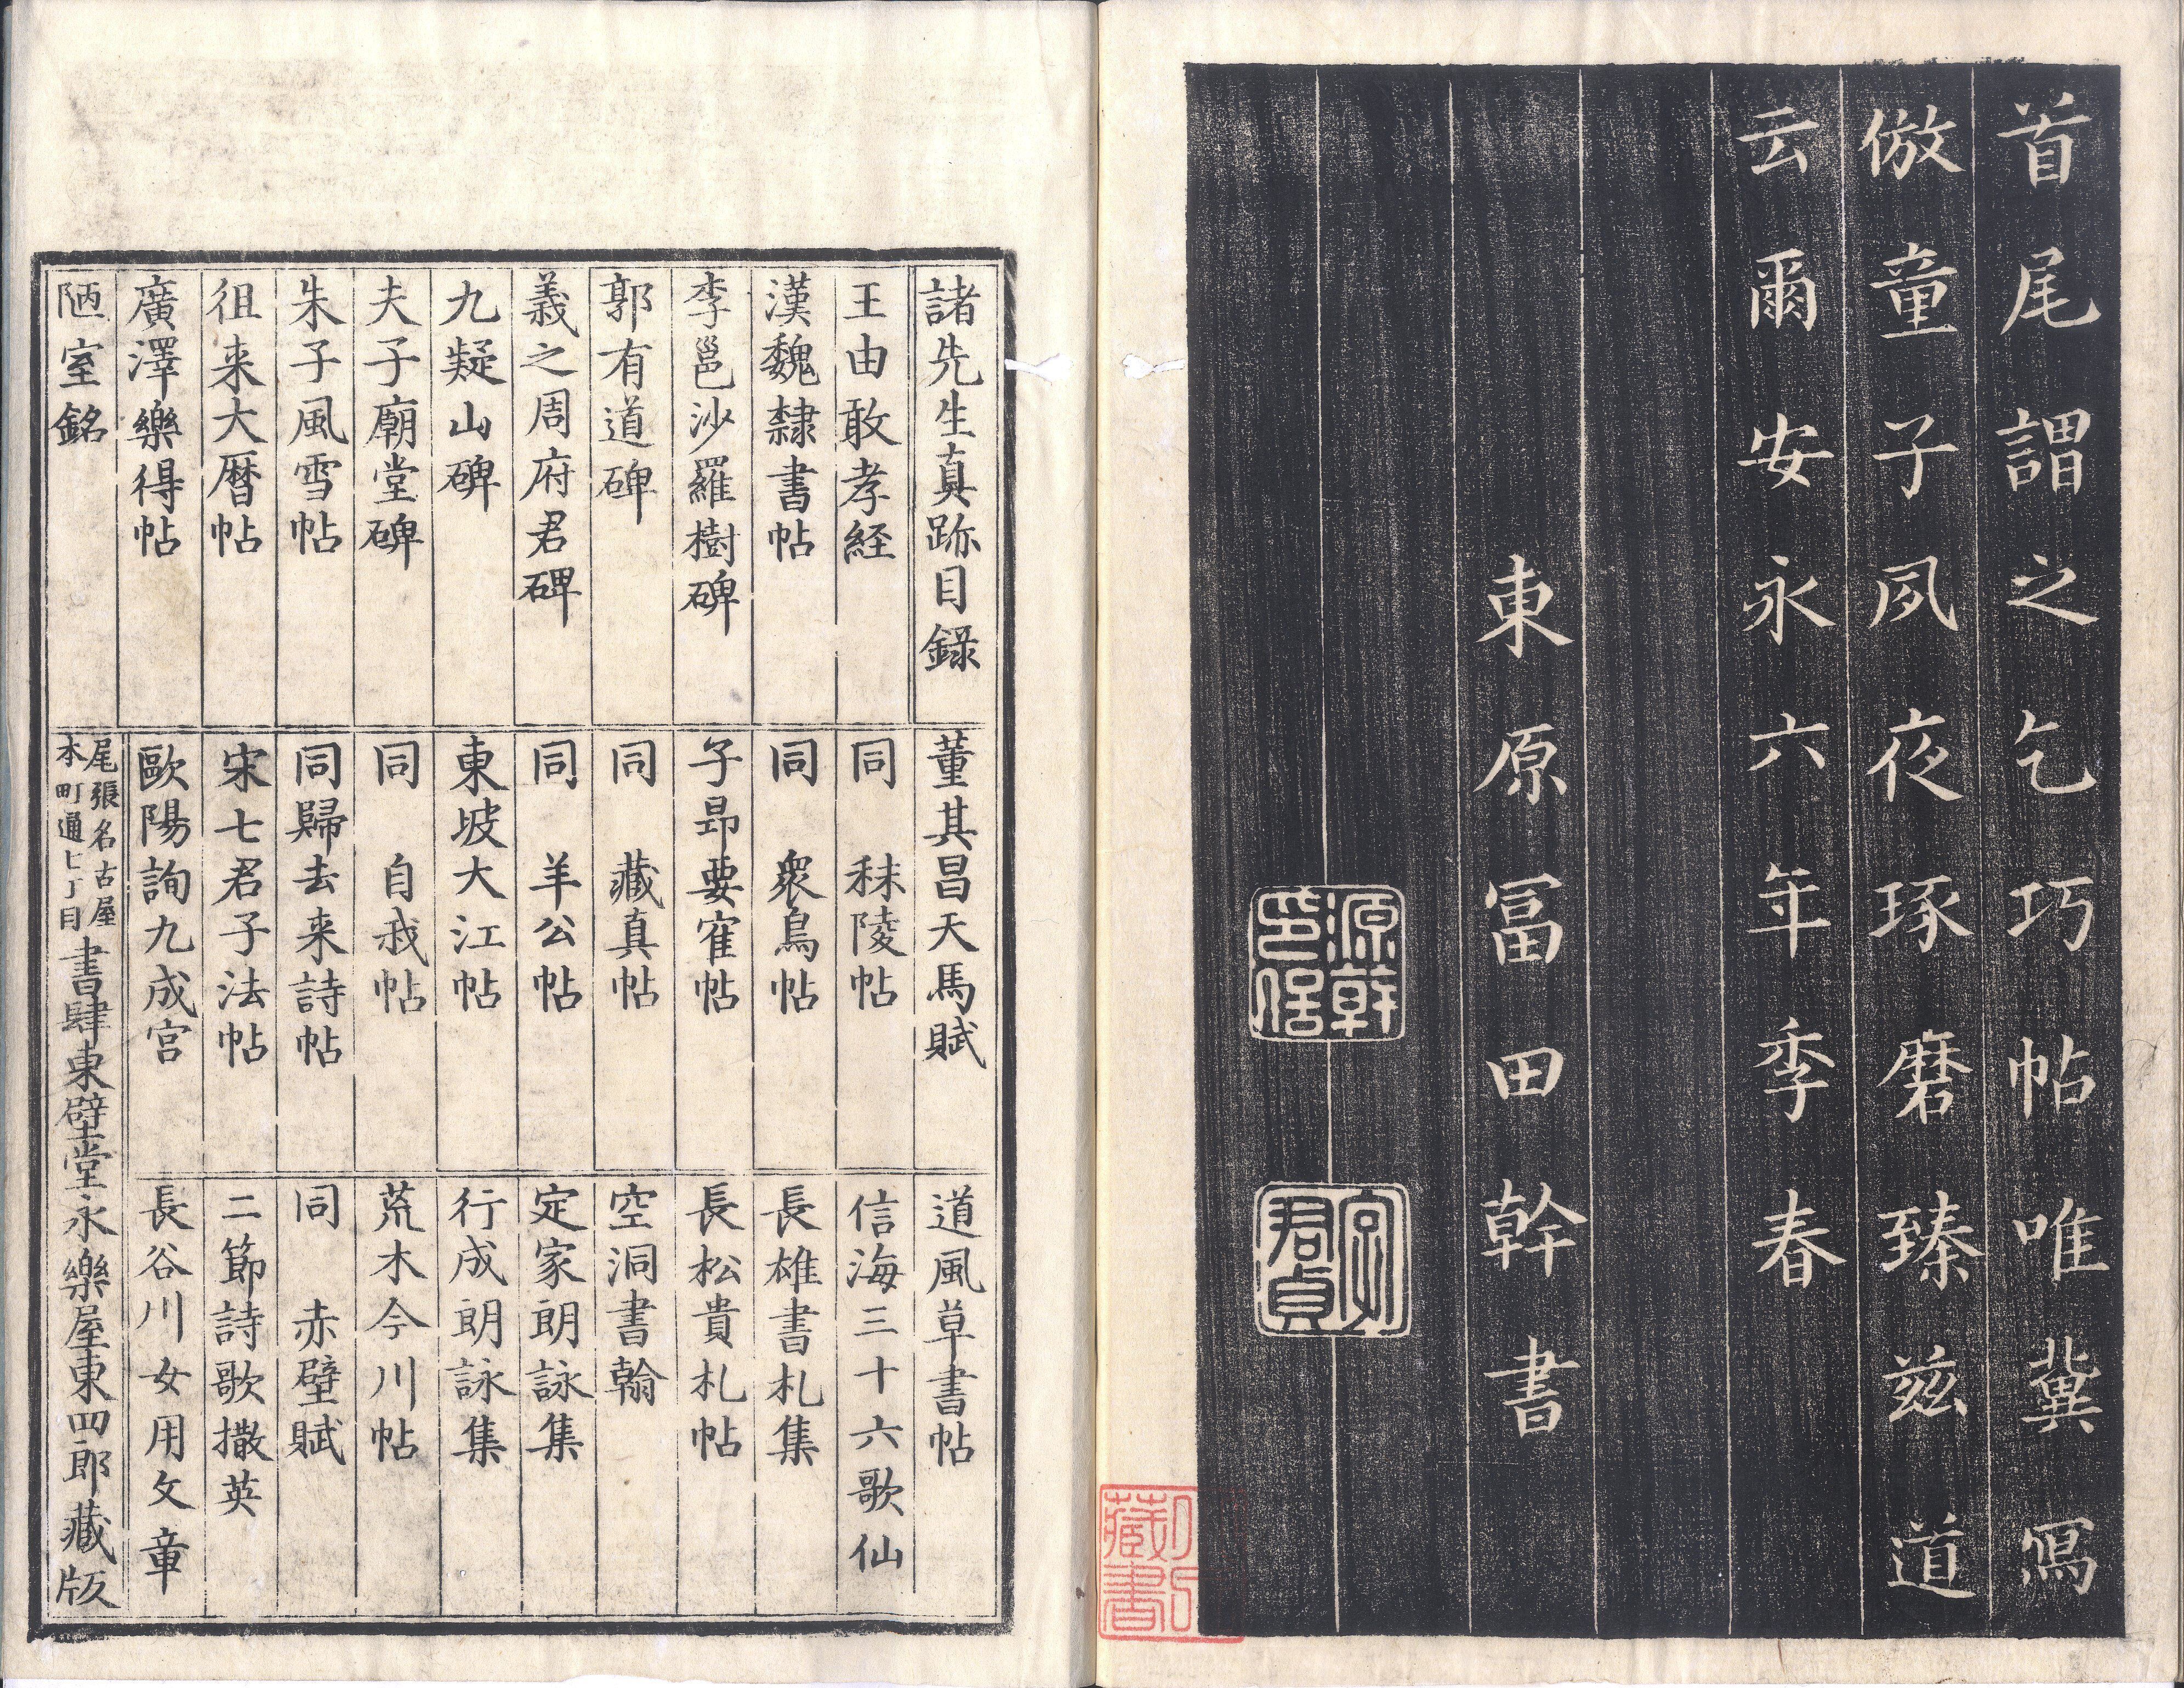 首尾謂之乞巧帖唯冀寫
倣童子夙夜琢磨臻茲道
云爾安永六年季春
東原冨田幹書
源幹
印信
字
君貞
藏書
諸先生真跡目錄
王由敢孝経
漢魏隸書帖
李邕沙羅樹碑
郭有道碑
義之周府君碑
九疑山碑
夫子廟堂碑
朱子風雪帖
徂来大曆帖
廣澤樂得帖
陋室銘
董其昌天馬賦
同 秣陵帖
同 衆鳥帖
子昻要寉帖
同 藏真帖
同 羊公帖
東坡大江帖
同 自我帖
同歸去来詩帖
宋七君子法帖
歐陽詢九成宮
道風草書帖
信海三十六歌仙
長雄書札集
長松貴札帖
空洞書翰
定家朗詠集
行成朗詠集
荒木今川帖
同 赤壁賦
二節詩歌撒英
長谷川女用文章
尾張名古屋
本町通七丁目
書肆東壁堂永樂屋東四郎藏版